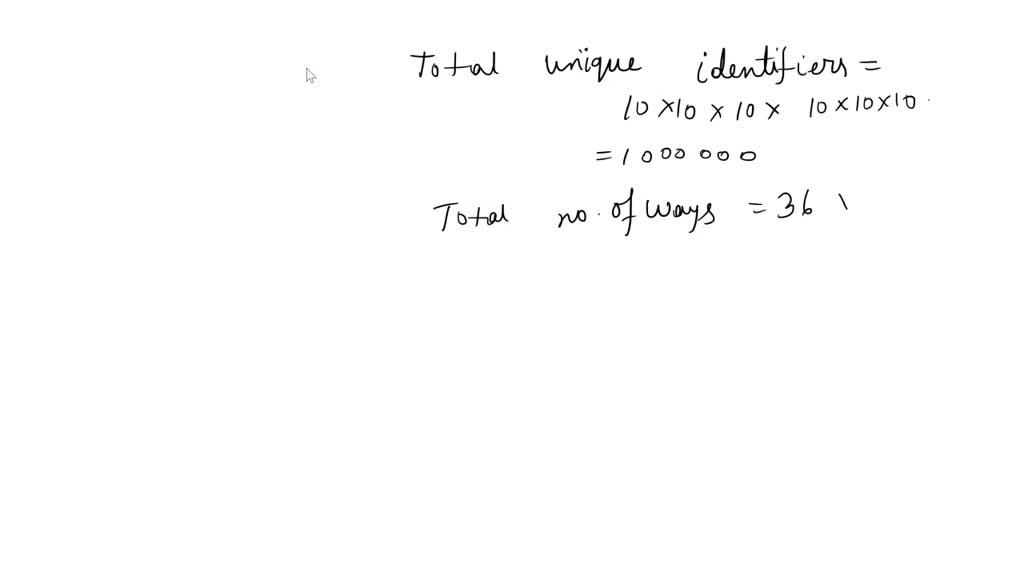 Total unique identifiers =
10 × 10 × 10 × 10 × 10 × 10
= 1000 000
Total no. of ways = 36 \